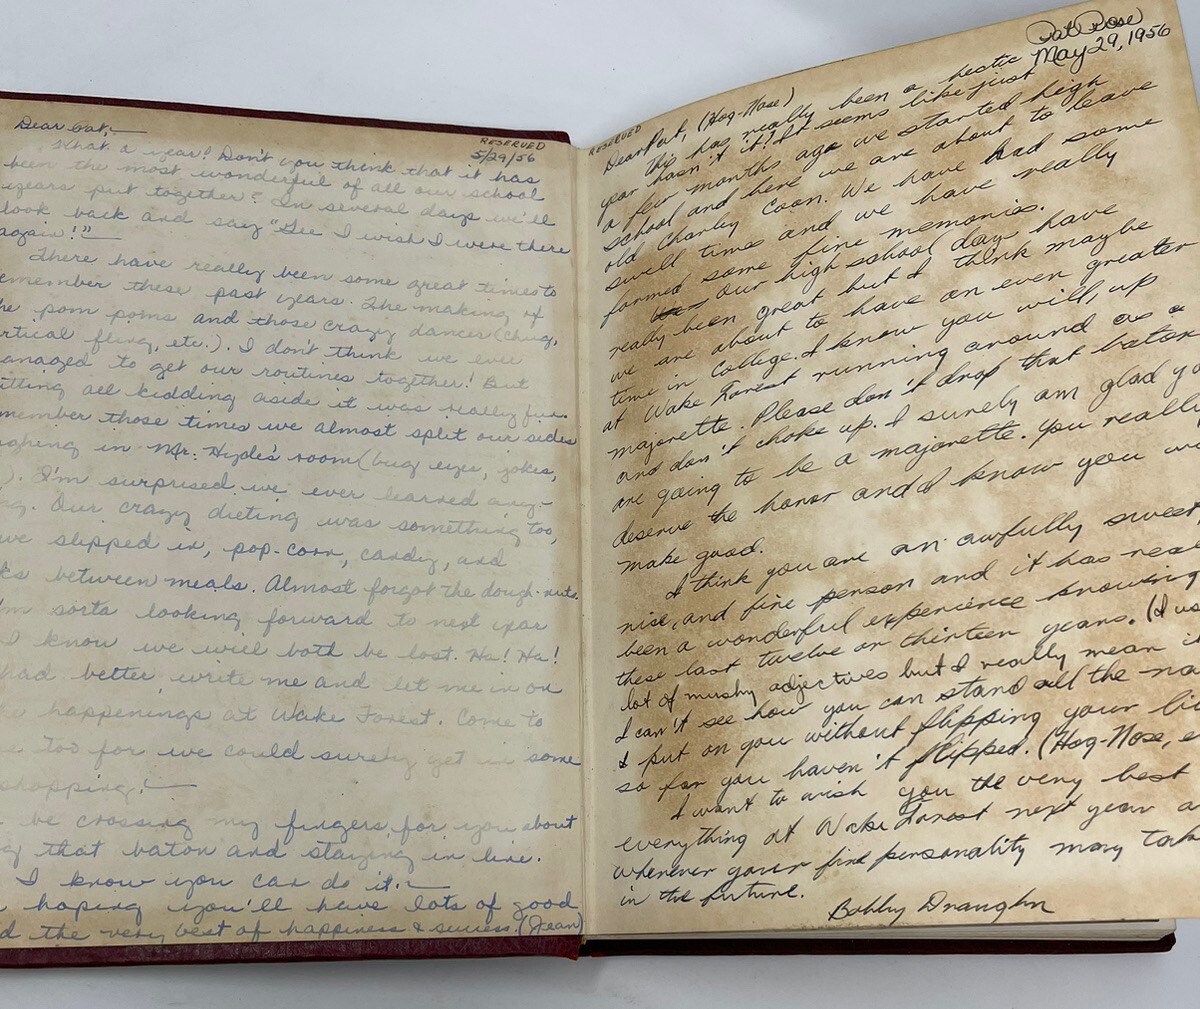 Dear Pat,—
RESERVED
5/29/56
What a year! Don't you think that it has
been the most wonderful of all our school
years put together? In several days we'll
look back and say "Gee I wish I were there
again!"—
There have really been some great times to
emember these past years. The making of
he pom poms and those crazy dances (Chug,
ertical fling, etc.). I don't think we ever
anaged to get our routines together! But
utting all kidding aside it was really fun.
member those times we almost split our sides
ghing in Mr. Hyde's room (bug eyes, jokes,
). I'm surprised we ever learned any-
g. Our crazy dieting was something too,
we slipped in, pop-corn, candy, and
ks between meals. Almost forgot the dough-nuts.
I'm sorta looking forward to next year
I know we will both be lost. Ha! Ha!
had better write me and let me in on
he happenings at Wake Forest. Come to
too for we could surely get in some
shopping.—
be crossing my fingers for you about
g that baton and staying in line.
I know you can do it.—
hoping you'll have lots of good
d the very best of happiness & success. (Jean)
Pat Rose
May 29, 1956
RESERVED
Dear Pat, (Hog-Nose)
This has really been a hectic
year hasn't it! It seems like just
a few months ago we started high
school and here we are about to leave
old Charley Coon. We have had some
swell times and we have really
formed some fine memories.
Our high school days have
really been great but I think maybe
we are about to have an even greater
time in College. I know you will, up
at Wake Forest running around as a
majorette. Please don't drop that baton
and don't choke up. I surely am glad yo
are going to be a majorette. You really
deserve the honor and I know you wi
make good.
I think you are an awfully sweet
nice, and fine person and it has real
been a wonderful experience knowing
these last twelve or thirteen years. (I us
lot of mushy adjectives but I really mean i
I can't see how you can stand all the na
I put on you without flipping your li
so far you haven't flipped. (Hog-Nose, e
I want to wish you the very best
everything at Wake Forest next year a
whenever your fine personality may take
in the future.
Bobby Draughn